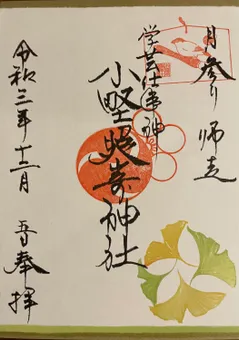 月参り 師走
学芸仕事神
小野照崎神社
令和三年十二月 吾奉拝